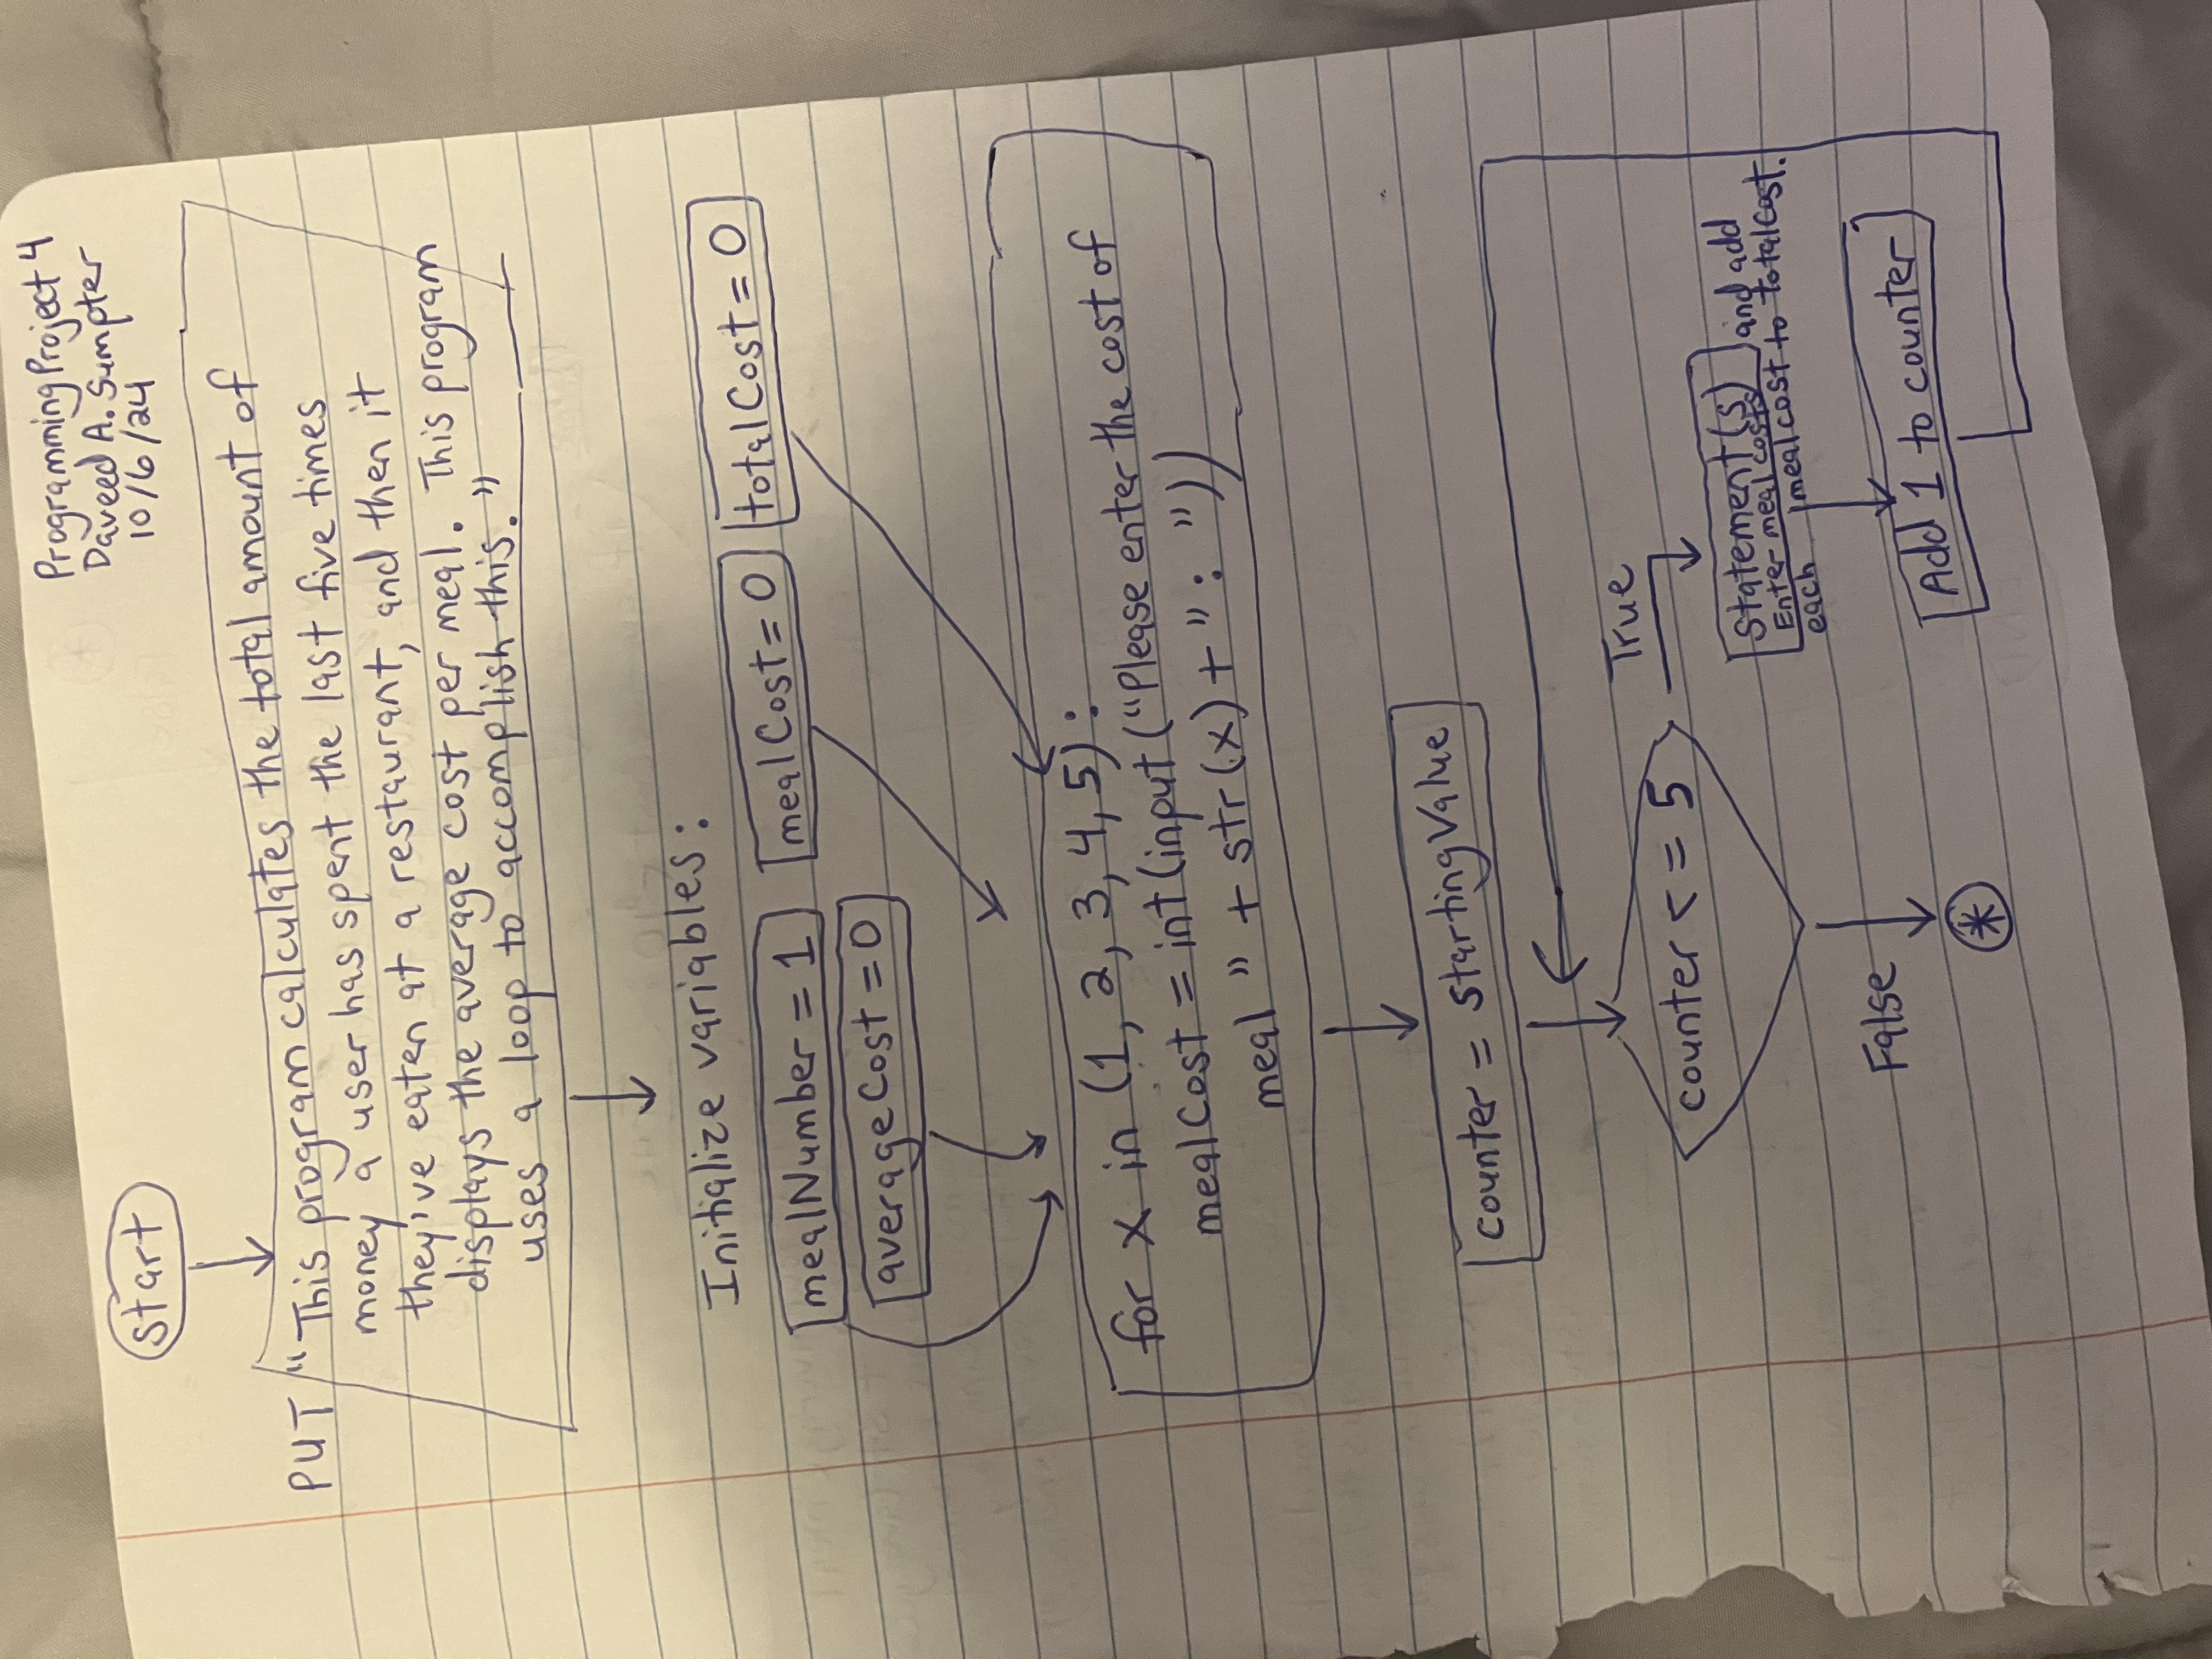 Programming Project 4
Daveed A. Sumpter
10/6/24
start
PUT "This program calculates the total amount of
money a user has spent the last five times
they've eaten at a restaurant, and then it
displays the average cost per meal. This program
uses a loop to accomplish this."
Initialize variables:
mealNumber = 1 mealCost = 0 totalCost = 0
averageCost = 0
for x in (1, 2, 3, 4, 5):
mealCost = int(input("Please enter the cost of
meal " + str(x) + ": "))
counter = startingValue
counter <= 5
True
Statement(s)
Enter meal costs and add
each mealcost to totalcost.
False
Add 1 to counter
*